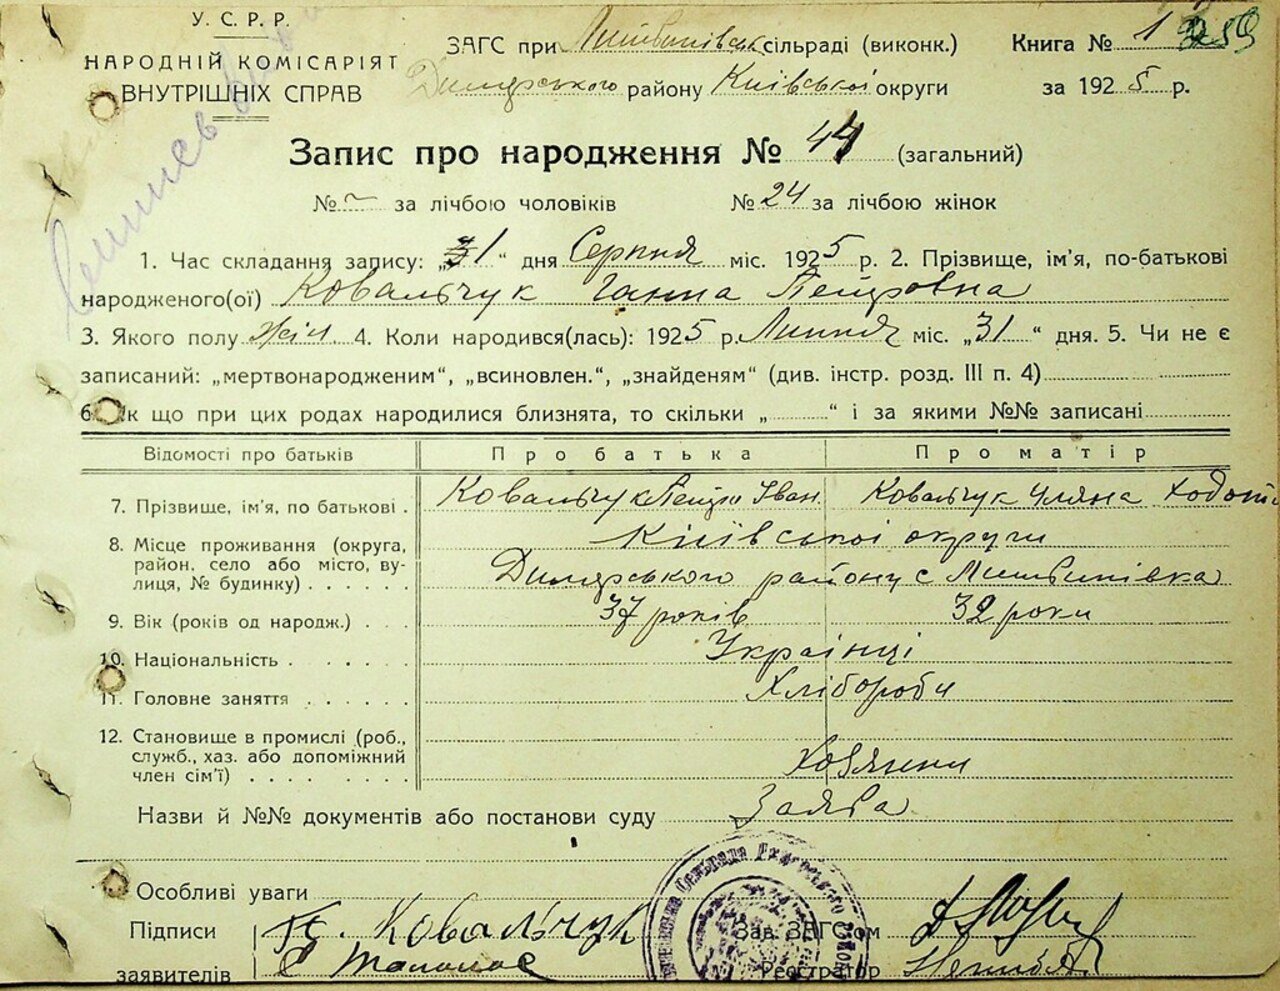 У. С. Р. Р.
НАРОДНІЙ КОМІСАРІЯТ
ВНУТРІШНІХ СПРАВ
ЗАГС при Литвинівськ сільраді (виконк.)
Димерського району Київської округи
Книга № 1 259
за 1925 р.
Запис про народження № 44 (загальний)
№ ~ за лічбою чоловіків № 24 за лічбою жінок
1. Час складання запису: „31“ дня Серпня міс. 1925 р. 2. Прізвище, ім'я, по-батькові
народженого(ої) Ковальчук Ганна Петровна
3. Якого полу жін. 4. Коли народився(лась): 1925 р. Липня міс. „31“ дня. 5. Чи не є
записаний: „мертвонародженим“, „всиновлен.“, „знайденям“ (див. інстр. розд. III п. 4)
6. Як що при цих родах народилися близнята, то скільки „ “ і за якими №№ записані
Відомості про батьків Про батька Про матір
7. Прізвище, ім'я, по батькові . Ковальчук Петро Іван. Ковальчук Уляна
8. Місце проживання (округа, Київської округи
район, село або місто, ву-
лиця, № будинку) . . . . . Димерського району с Литвинівка
9. Вік (років од народж.) . . . 37 років 32 роки
10. Національність . . . . . . Українці
11. Головне заняття . . . . . . Хлібороби
12. Становище в промислі (роб.,
служб., хаз. або допоміжний
член сім'ї) . . . . . . . . Хозяини
Назви й №№ документів або постанови суду Заява
Особливі уваги
Підписи П. Ковальчук Зав. ЗАГС'ом
заявителів Реєстратор